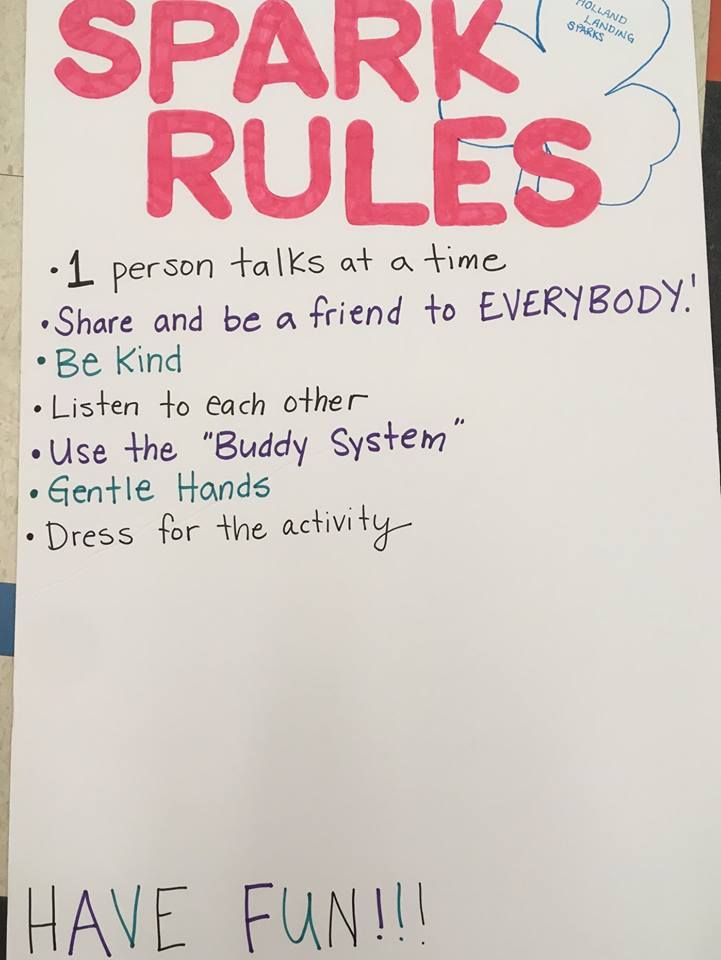 SPARK
HOLLAND
LANDING
SPARKS
RULES
• 1 person talks at a time
• Share and be a friend to EVERYBODY!
• Be Kind
• Listen to each other
• Use the "Buddy System"
• Gentle Hands
• Dress for the activity
HAVE FUN!!!